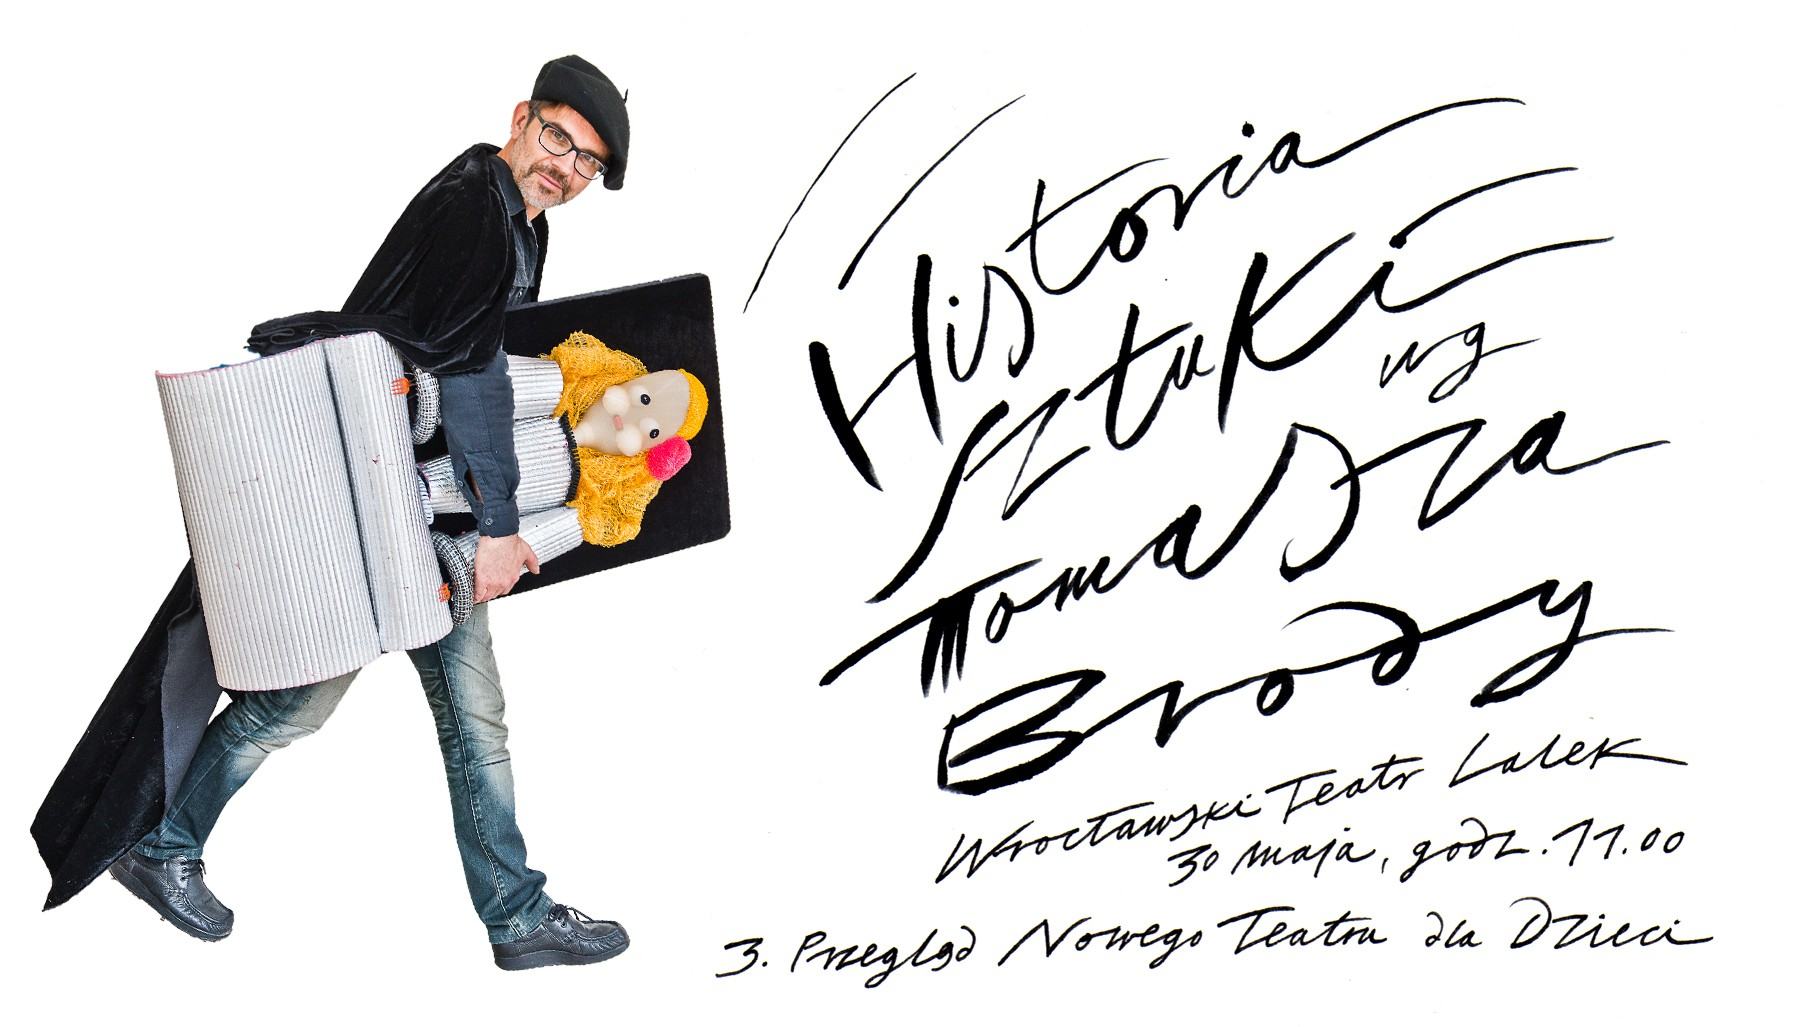 Historia
Sztuki
wg
Tomasza
Brody
Wrocławski Teatr Lalek
30 maja, godz. 11.00
3. Przegląd Nowego Teatru dla Dzieci